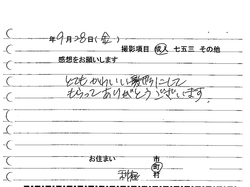 年9月28日(金)
撮影項目 成人 七五三 その他
感想をお願いします
とてもかわいい髪型にして
もらってありがとうございます。
お住まい 市
町
村